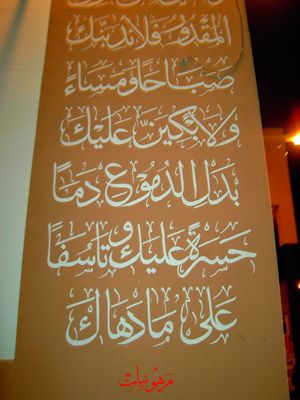 المقدور فلأندبنك
صباحا ومساء
ولأبكين عليك
بدل الدموع دما
حسرة عليك وتأسفا
على ما دهاك